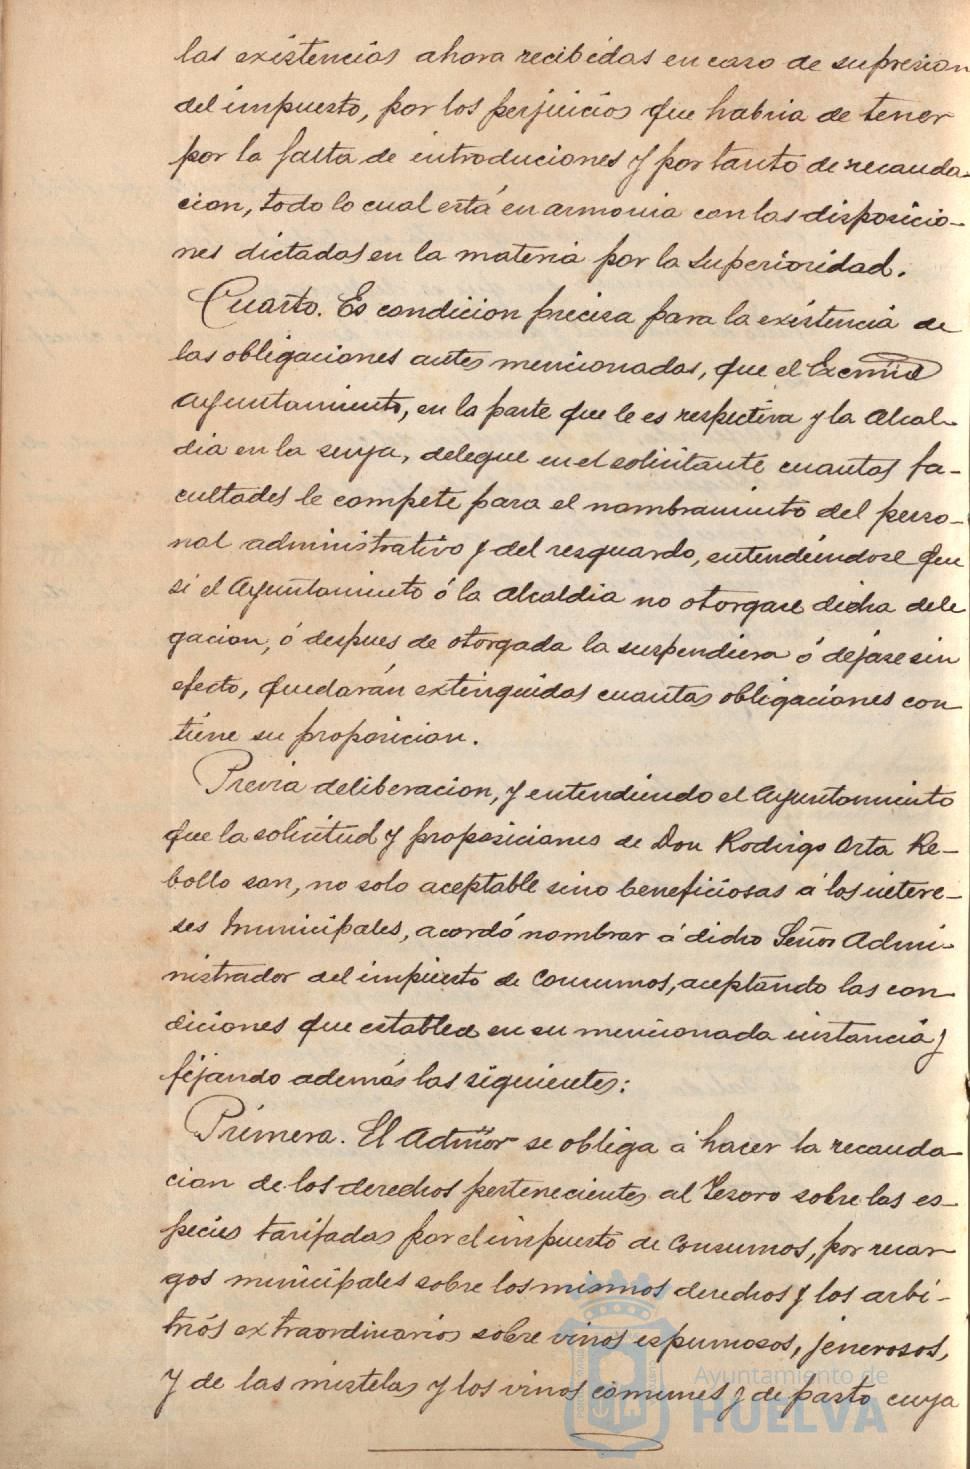 las existencias ahora recibidas en caso de supresion
del impuesto, por los perjuicios que habria de tener
por la falta de introduciones y por tanto de recauda-
cion, todo lo cual está en armonia con las disposicio-
nes dictadas en la materia por la Superioridad.
Cuarto. Es condicion precisa para la existencia de
las obligaciones antes mencionadas, que el Excmo
Ayuntamiento, en la parte que le es respectiva y la Alcal-
dia en la suya, delegue en el solicitante cuantas fa-
cultades le compete para el nombramiento del perso-
nal administrativo y del resguardo, entendiendose que
si el Ayuntamiento ó la Alcaldia no otorgase dicha dele
gacion, ó despues de otorgada la suspendiera ó dejase sin
efecto, quedarán extinguidas cuantas obligaciones con
tiene su proposicion.
Previa deliberacion, y entendiendo el Ayuntamiento
que la solicitud y proposiciones de Don Rodrigo Orta Re-
bollo son, no solo aceptable sino beneficiosas á los intere-
ses Municipales, acordó nombrar á dicho Señor Admi-
nistrador del impuesto de Consumos, aceptando las con
diciones que establece en su mencionada instancia y
fijando además las siguientes:
Primera. El Admor se obliga á hacer la recauda-
cion de los derechos pertenecientes al Tesoro sobre las es-
pecies tarifadas por el impuesto de Consumos, por recar
gos municipales sobre los mismos derechos y los arbi-
trios extraordinarios sobre vinos espumosos, jenerosos,
y de las mistelas y los vinos comunes y de pasto cuya
Ayuntamiento de
HUELVA